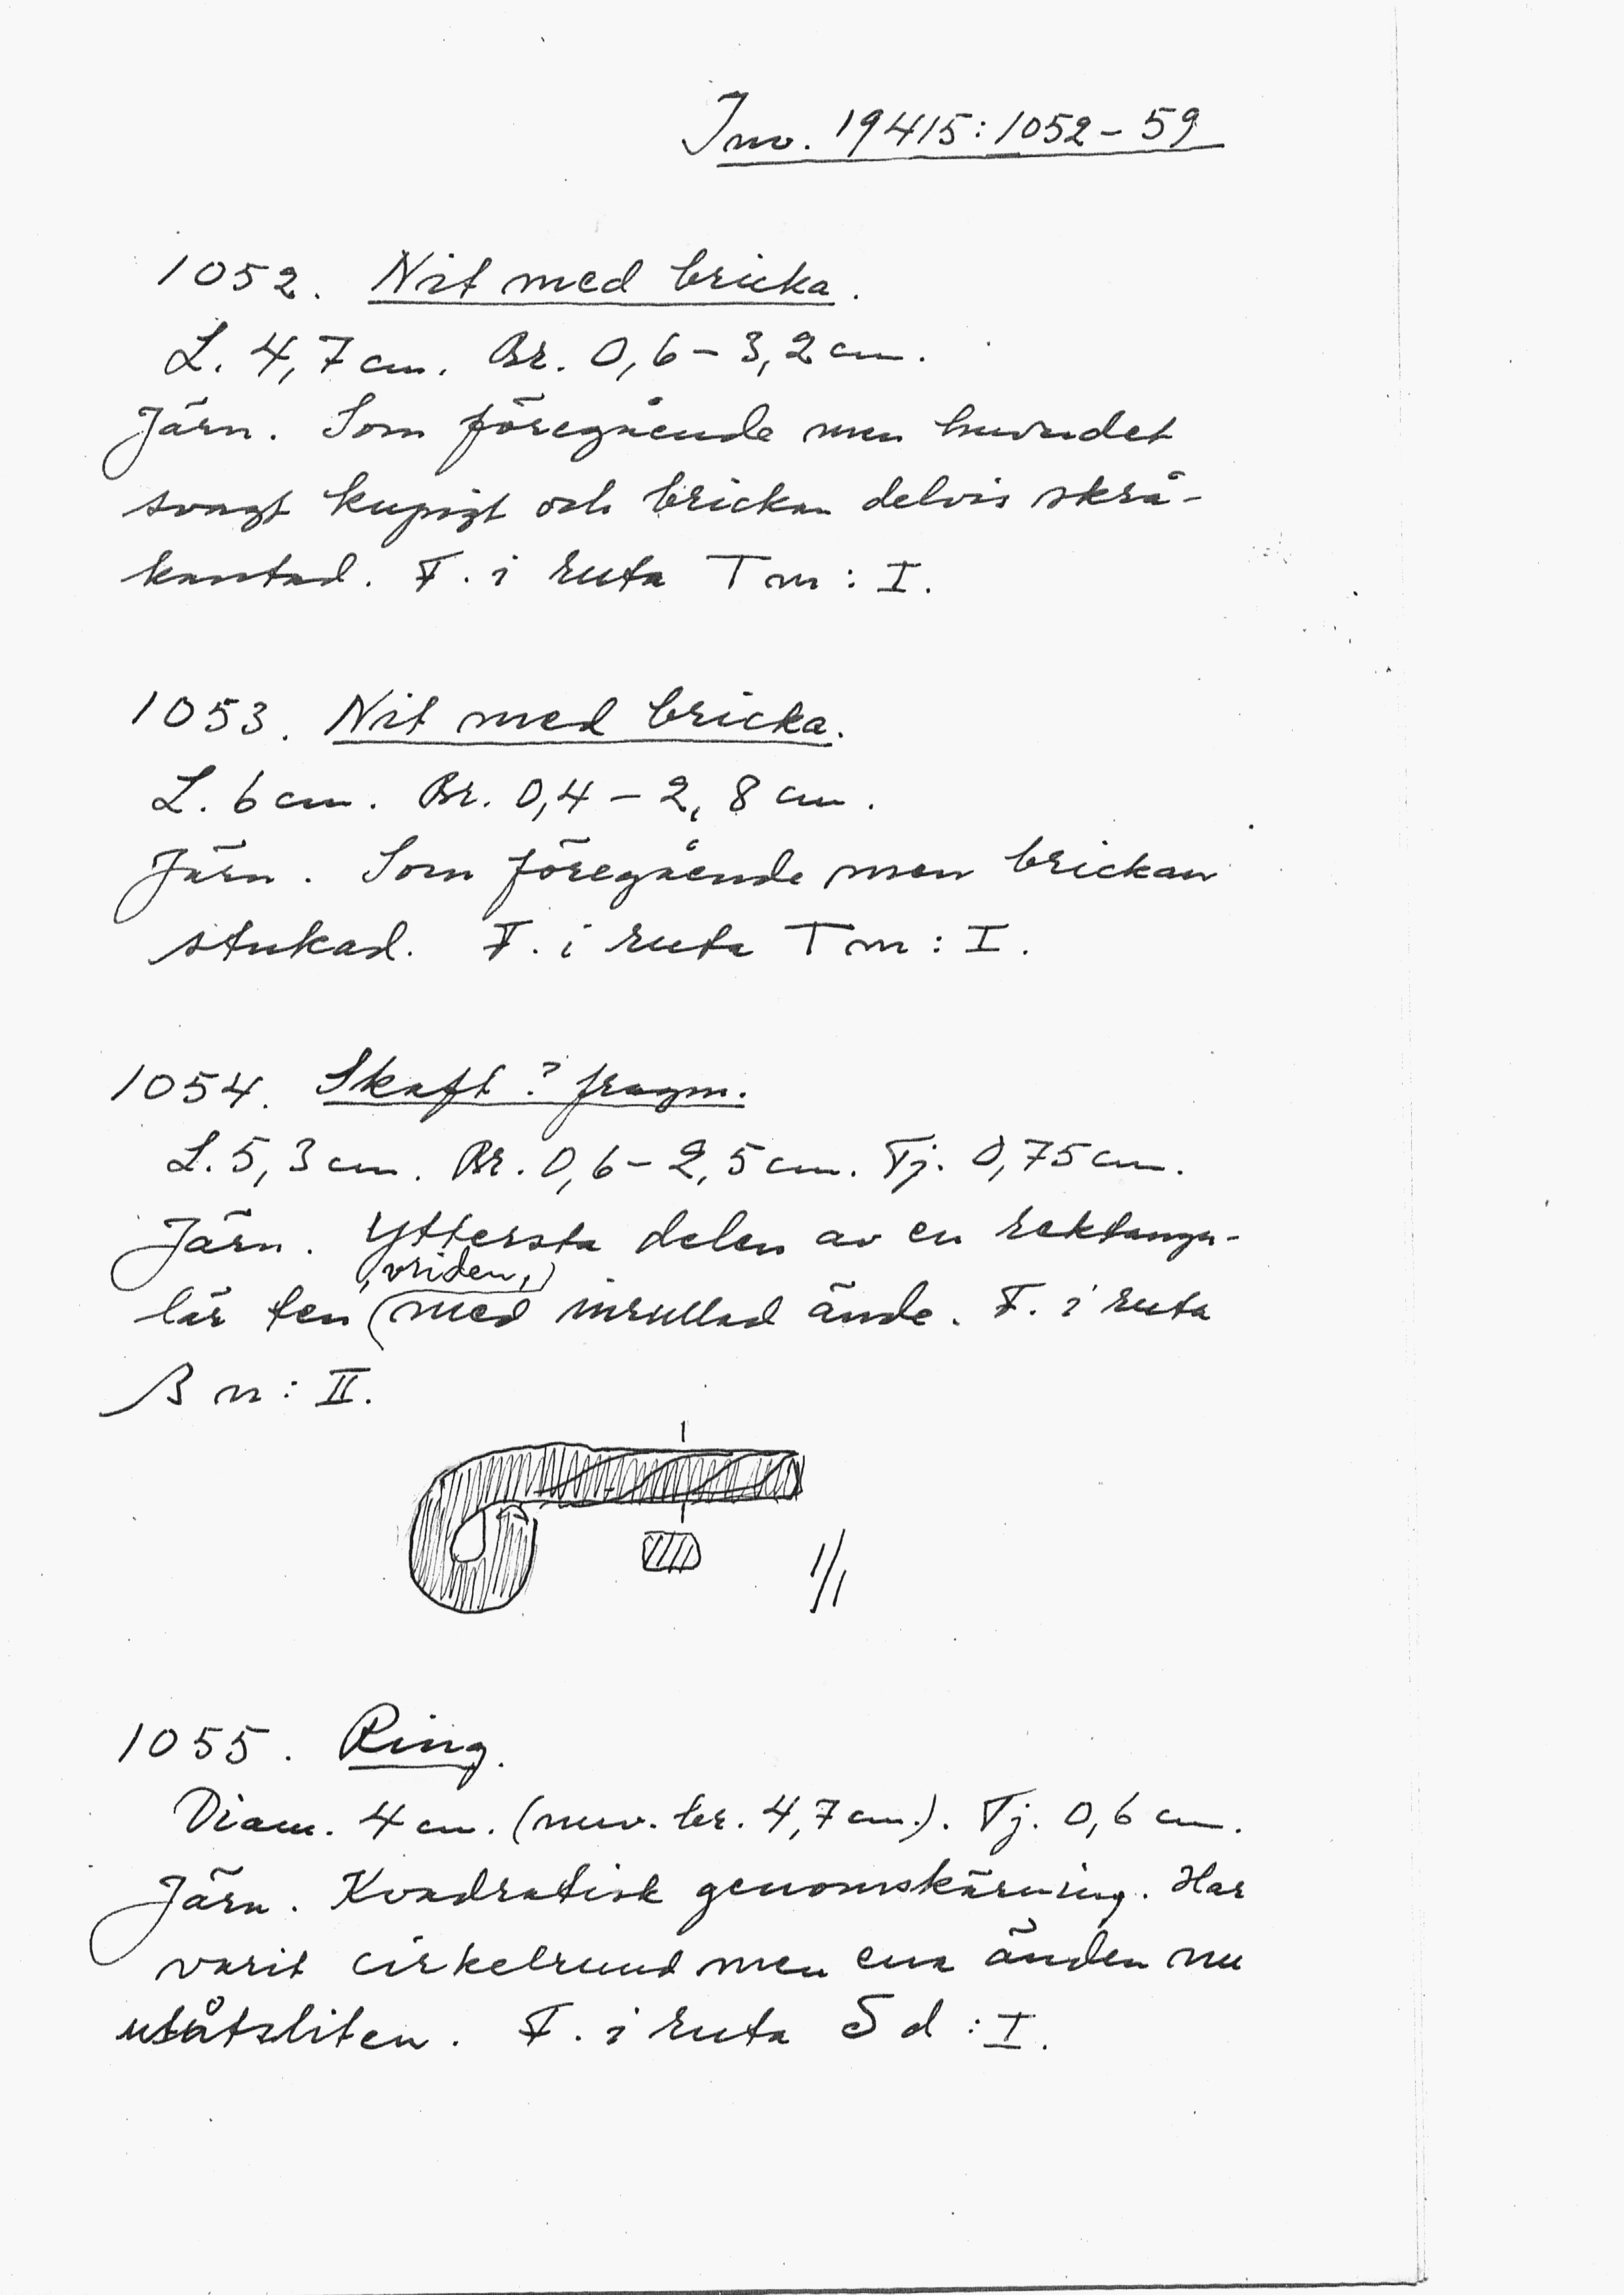 Inv. 19415:1052-59
1052. Nit med bricka.
L. 4,7 cm. Br. 0,6-3,2 cm.
Järn. Som föregående men huvudet
svagt kupigt och brickan delvis skrå-
kantad. F. i ruta T m : I.
1053. Nit med bricka.
L. 6 cm. Br. 0,4-2,8 cm.
Järn. Som föregående men brickan
stukad. F. i ruta T m : I.
1054. Skaft? fragm.
L. 5,3 cm. Br. 0,6-2,5 cm. Tj. 0,75 cm.
Järn. Yttersta delen av en rektangu-
lär ten, vriden, med inrullad ände. F. i ruta
B n : II.
1/1
1055. Ring.
Diam. 4 cm. (nuv. br. 4,7 cm.). Tj. 0,6 cm.
Järn. Kvadratisk genomskärning. Har
varit cirkelrund men ena änden nu
utåtsliten. F. i ruta S d : I.